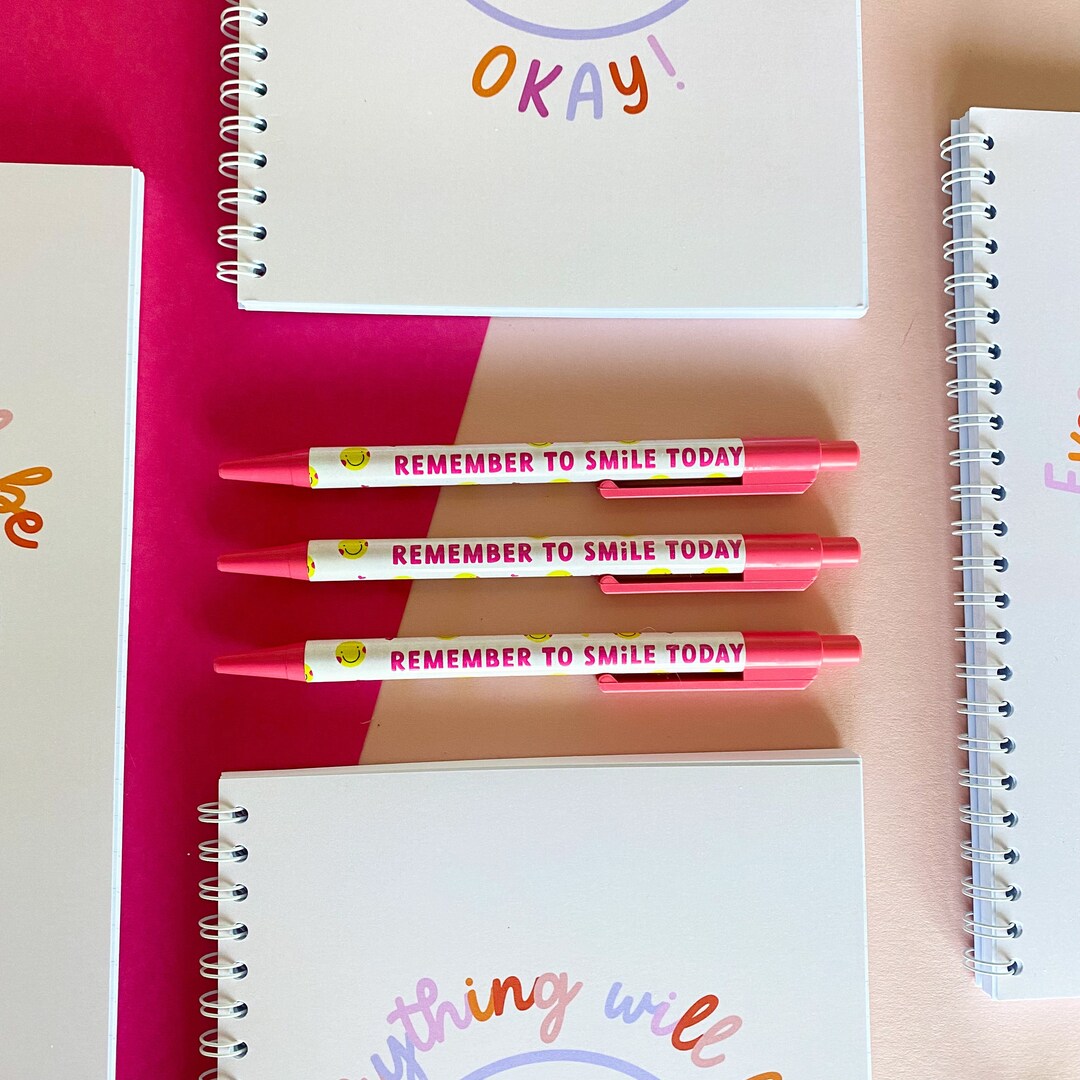 OKAY!
be
REMEMBER TO SMiLE TODAY
REMEMBER TO SMiLE TODAY
REMEMBER TO SMiLE TODAY
ything will